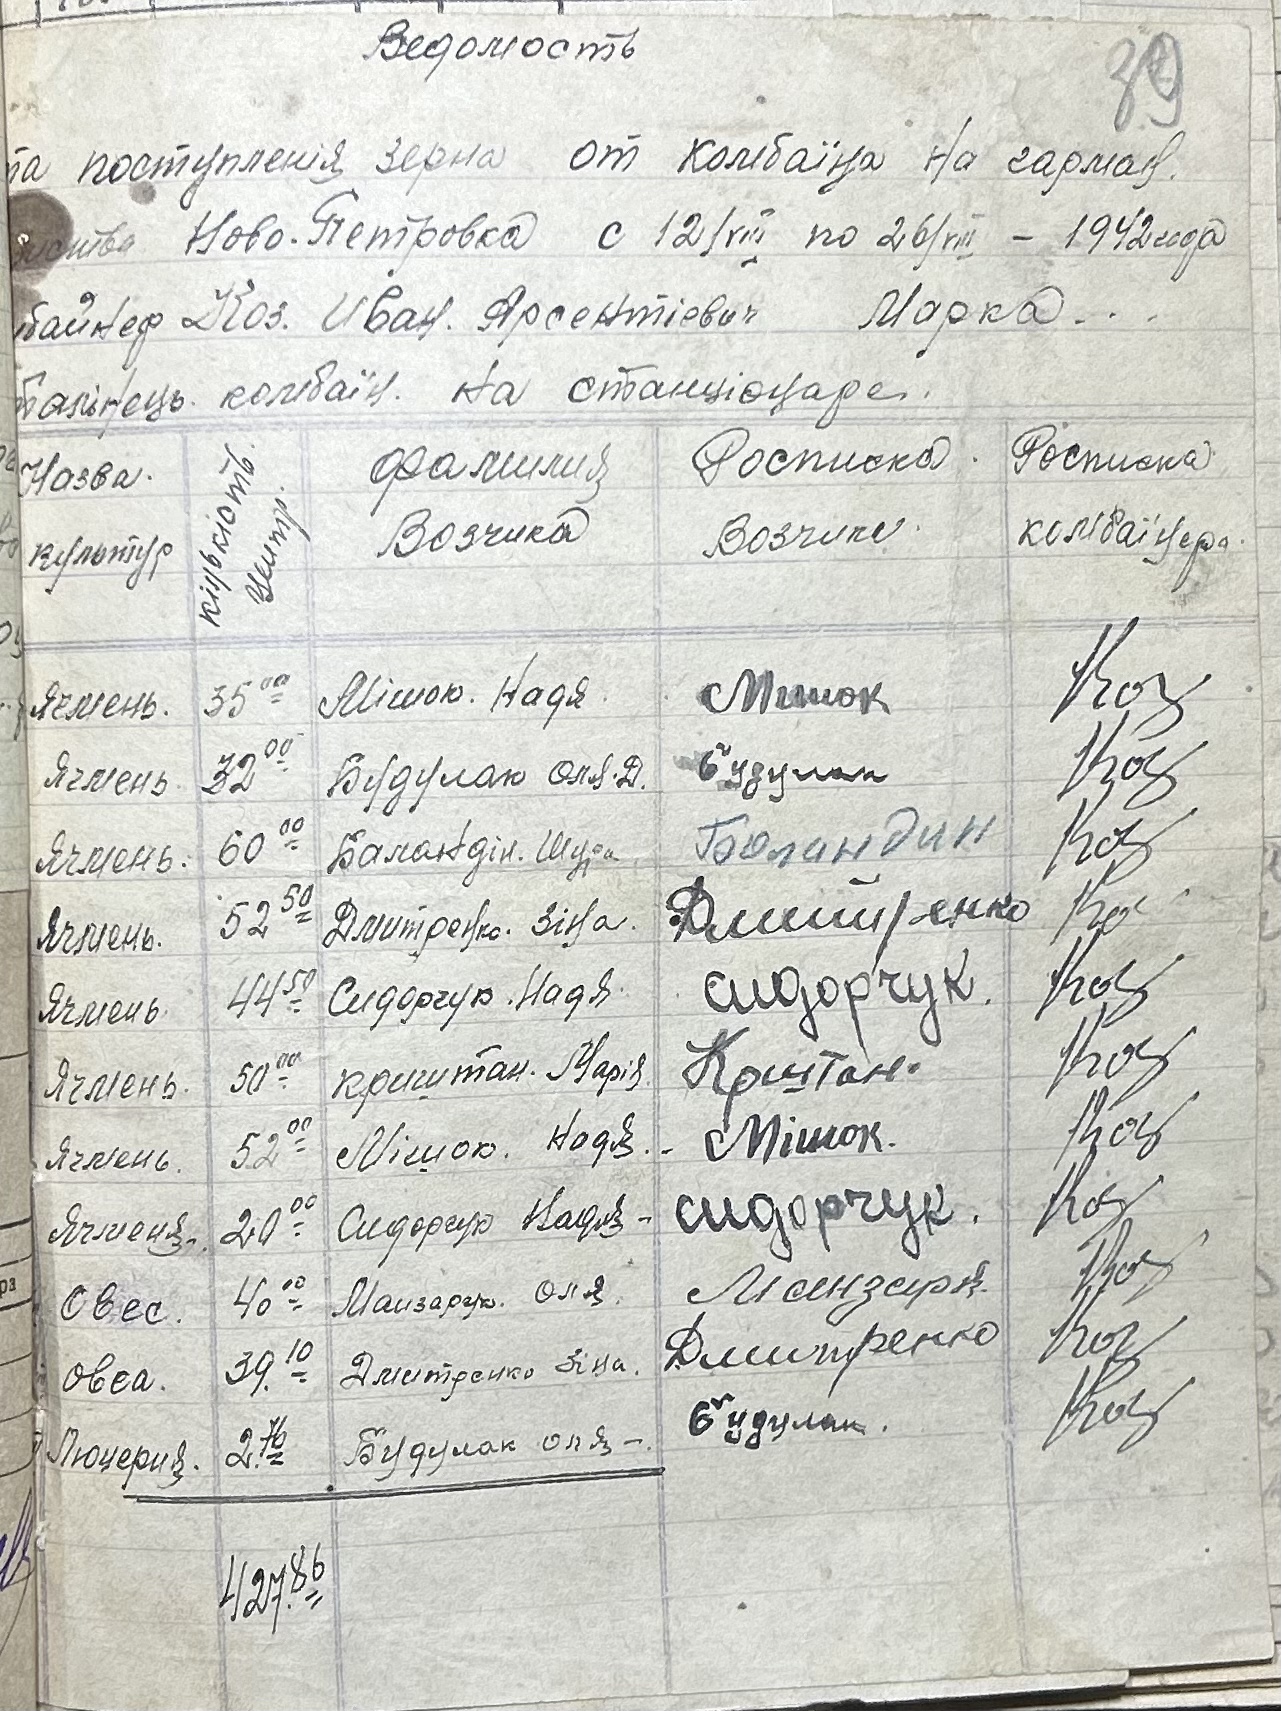 Ведомость
39
та поступленія зерна от комбаїна на гарман.
Ново-Петровка с 12/VIII по 26/VIII - 1942 года
байнер Коз. Иван. Арсентіевич Марка...
комбаїн. на станціонаре.
Назва культур
кількість Цнтр.
Фамилия Возчика
Росписка Возчика
Росписка комбаїнера
Ячмень. 35 00 Мішок. Надя Мишок Коз
Ячмень 32 00 Будулак Оля.Д. Будулак Коз
Ячмень. 60 00 Баландін. Шура Баландин Коз
Ячмень. 52 50 Дмитренко. Зіна. Дмитренко Коз
Ячмень 44 50 Сидорчук. Надя. сидорчук. Коз
Ячмень. 50 00 Криштан. Марія. Криштан. Коз
Ячмень. 52 00 Мішок. Надя.- Мішок. Коз
Ячменя. 20 00 Сидорчук Надя - сидорчук. Коз
Овес. 40 00 Манзарук. Оля. Коз
Овса. 39. 10 Дмитренко Зіна. Дмитренко Коз
Люцерия. 2. 76 Будулак Оля -. Будулак. Коз
427. 86